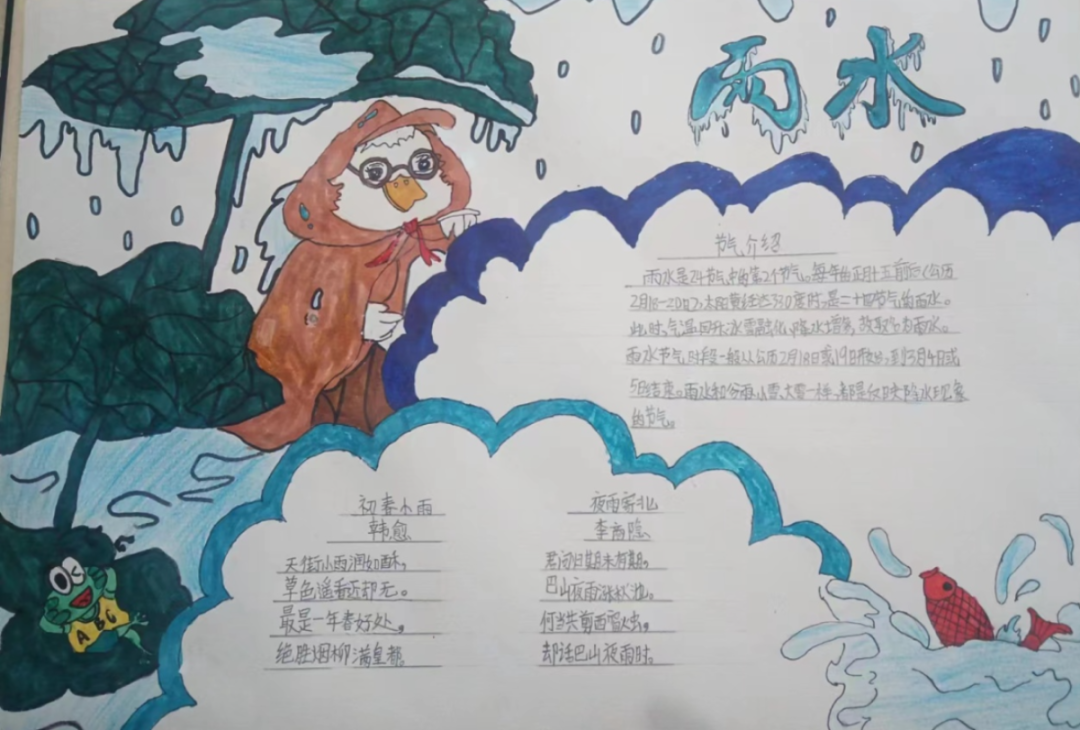 雨水
节气介绍
雨水是24节气中的第2个节气。每年的正月十五前后(公历
2月18-20日),太阳黄经达330度时,是二十四节气的雨水。
此时,气温回升、冰雪融化、降水增多,故取名为雨水。
雨水节气时段一般从公历2月18日或19日开始,到3月4日或
5日结束。雨水和谷雨、小雪、大雪一样,都是反映降水现象
的节气。
初春小雨
韩愈
天街小雨润如酥,
草色遥看近却无。
最是一年春好处,
绝胜烟柳满皇都。
夜雨寄北
李商隐
君问归期未有期,
巴山夜雨涨秋池。
何当共剪西窗烛,
却话巴山夜雨时。
ABC